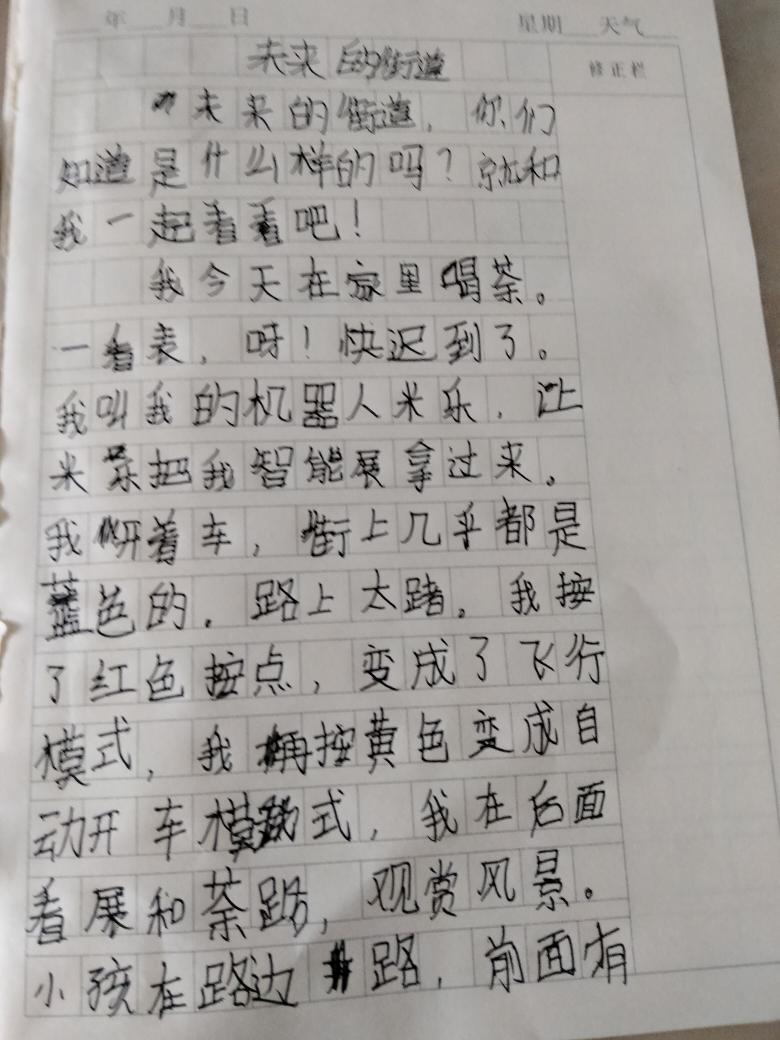 年 月 日 星期 天气
修正栏
未来的街道
未来的街道，你们
知道是什么样的吗？就和
我一起看看吧！
我今天在家里喝茶。
一看表，呀！快迟到了。
我叫我的机器人米乐，让
米乐把我智能屏拿过来。
我开着车，街上几乎都是
蓝色的。路上太堵。我按
了红色按点，变成了飞行
模式，我再按黄色变成自
动开车模式，我在后面
看屏和茶，观赏风景。
小孩在路边 路，前面有